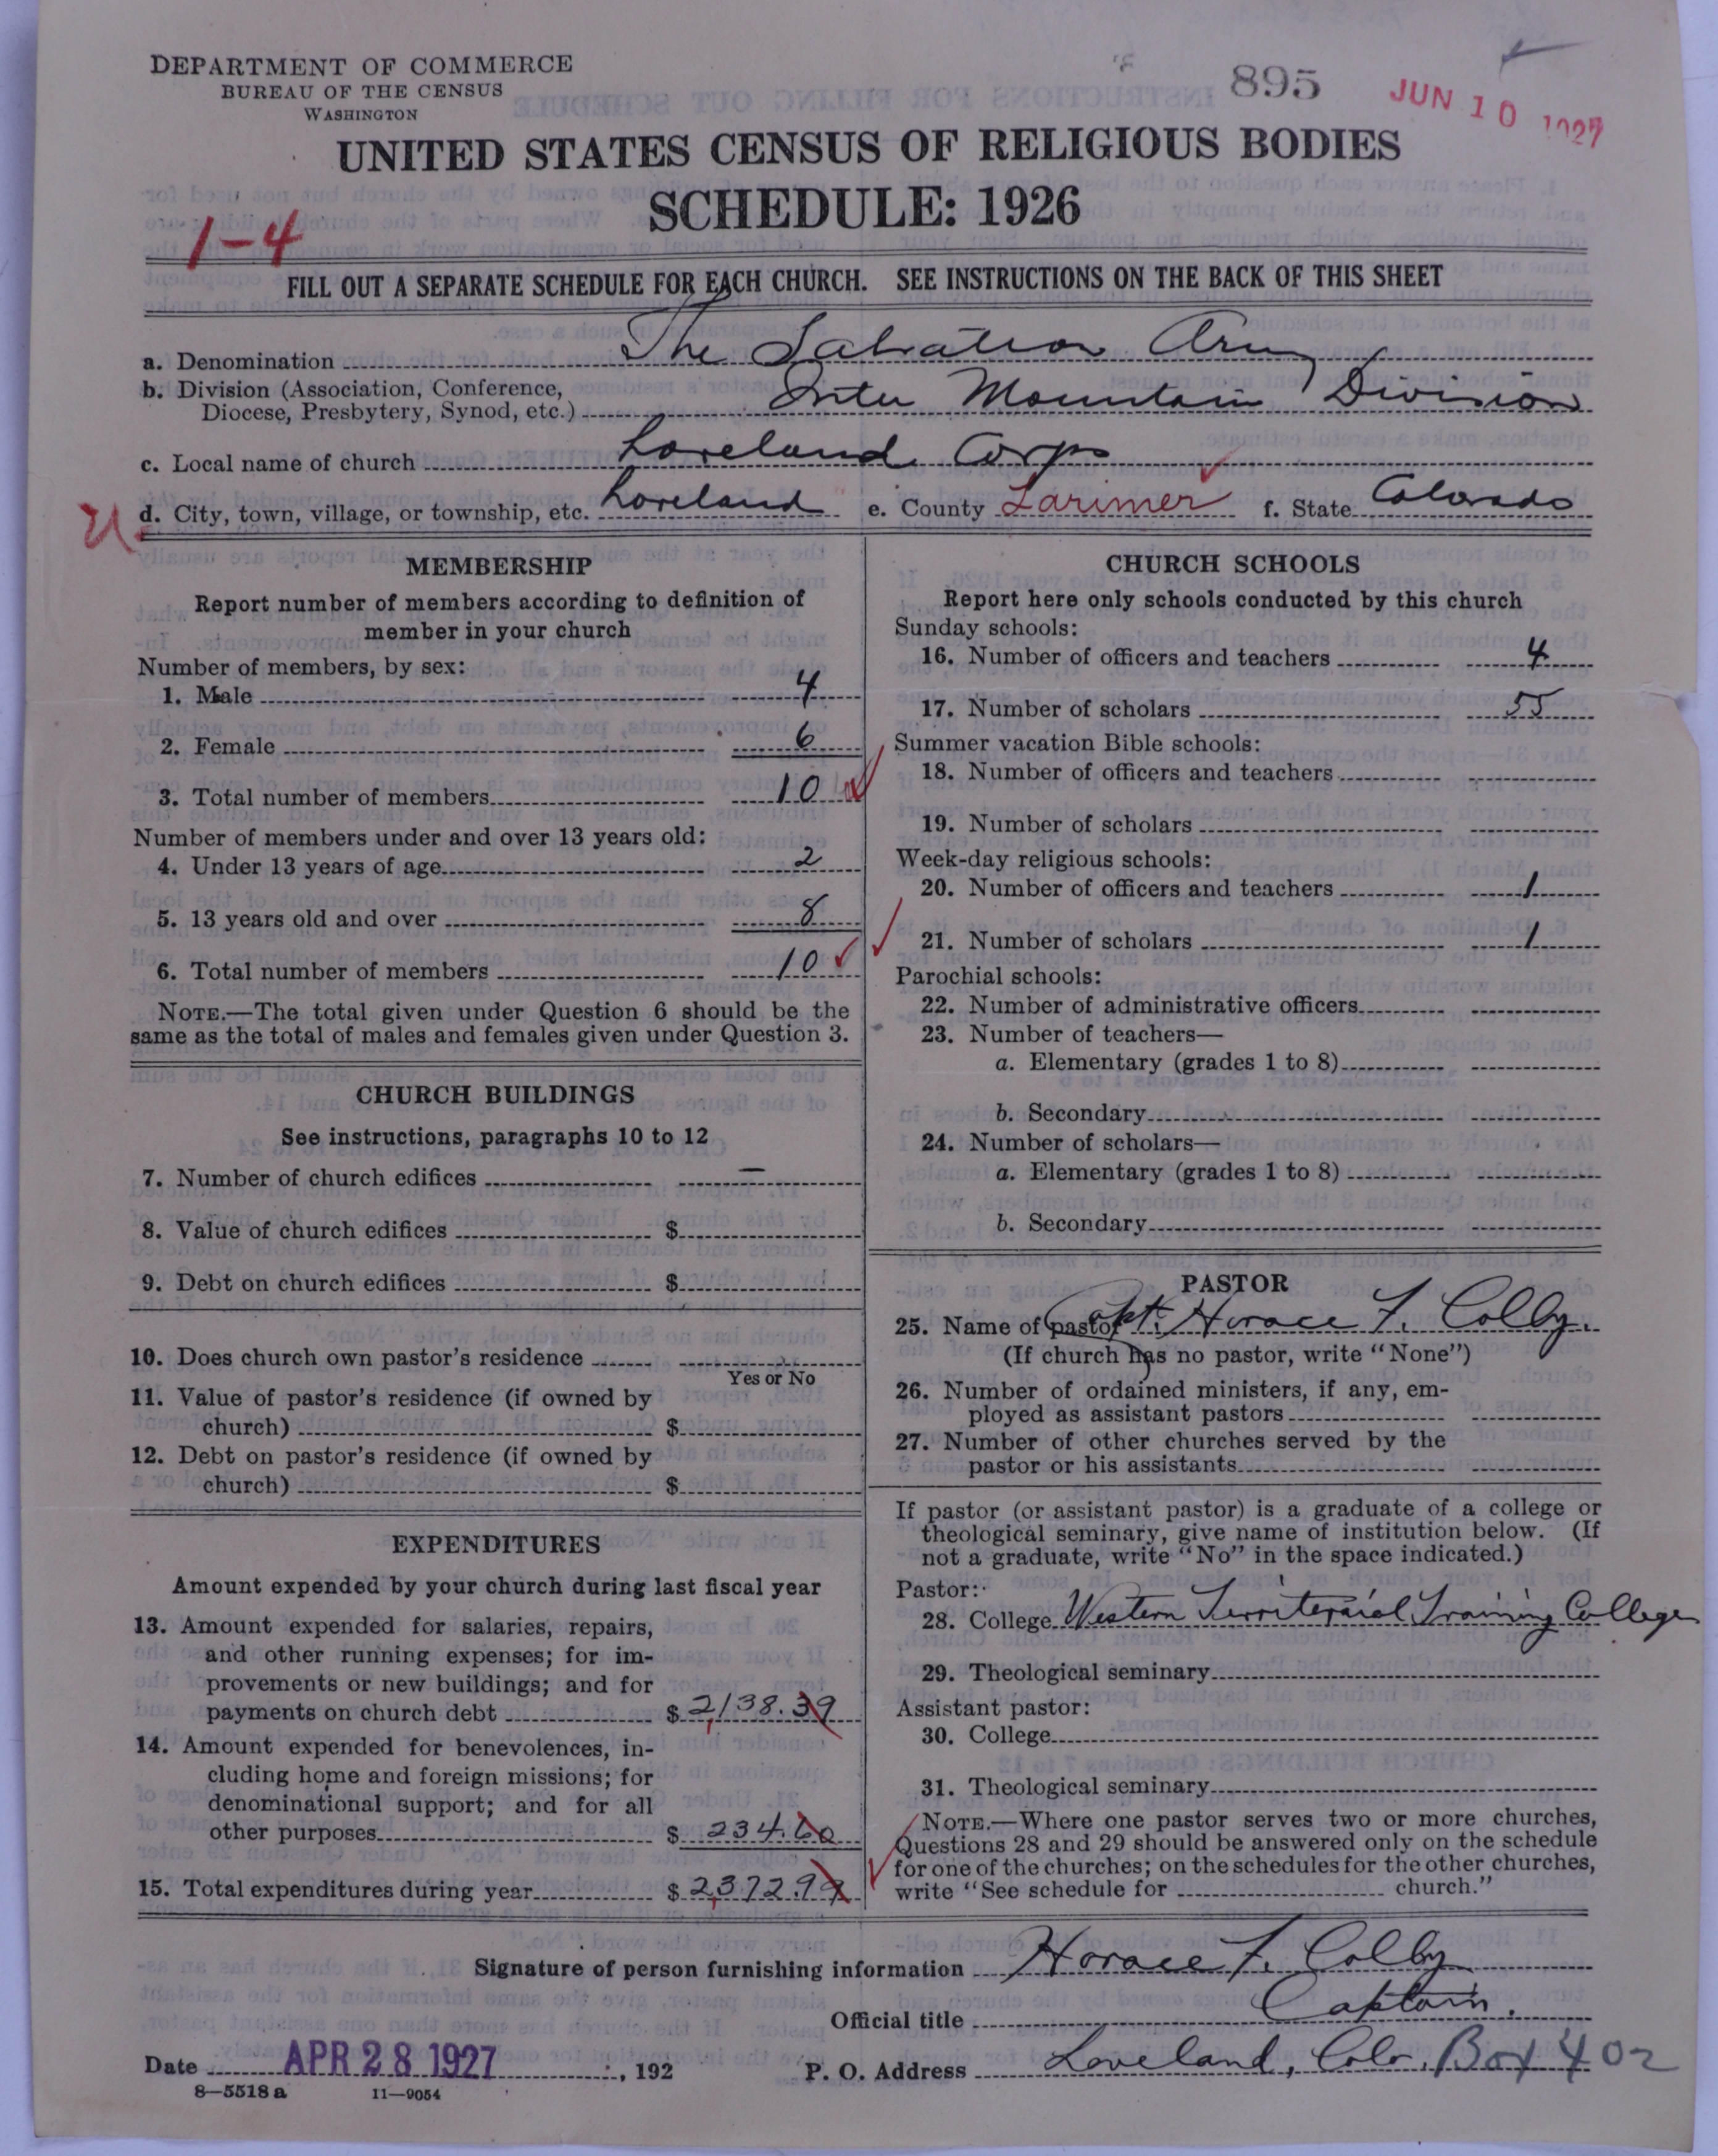 DEPARTMENT OF COMMERCE
BUREAU OF THE CENSUS
WASHINGTON
895
JUN 10 1927
UNITED STATES CENSUS OF RELIGIOUS BODIES
SCHEDULE: 1926
1-4
FILL OUT A SEPARATE SCHEDULE FOR EACH CHURCH. SEE INSTRUCTIONS ON THE BACK OF THIS SHEET
a. Denomination The Salvation Army
b. Division (Association, Conference,
Diocese, Presbytery, Synod, etc.) Inter Mountain Division
c. Local name of church Loveland Corps
d. City, town, village, or township, etc. Loveland e. County Larimer f. State Colorado
MEMBERSHIP
Report number of members according to definition of
member in your church
Number of members, by sex:
1. Male 4
2. Female 6
3. Total number of members 10
Number of members under and over 13 years old:
4. Under 13 years of age 2
5. 13 years old and over 8
6. Total number of members 10
NOTE.—The total given under Question 6 should be the
same as the total of males and females given under Question 3.
CHURCH BUILDINGS
See instructions, paragraphs 10 to 12
7. Number of church edifices —
8. Value of church edifices $
9. Debt on church edifices $
10. Does church own pastor's residence
Yes or No
11. Value of pastor's residence (if owned by
church) $
12. Debt on pastor's residence (if owned by
church) $
EXPENDITURES
Amount expended by your church during last fiscal year
13. Amount expended for salaries, repairs,
and other running expenses; for im-
provements or new buildings; and for
payments on church debt $ 2,138.39
14. Amount expended for benevolences, in-
cluding home and foreign missions; for
denominational support; and for all
other purposes $ 234.60
15. Total expenditures during year $ 2,372.99
CHURCH SCHOOLS
Report here only schools conducted by this church
Sunday schools:
16. Number of officers and teachers 4
17. Number of scholars 55
Summer vacation Bible schools:
18. Number of officers and teachers
19. Number of scholars
Week-day religious schools:
20. Number of officers and teachers 1
21. Number of scholars 1
Parochial schools:
22. Number of administrative officers
23. Number of teachers—
a. Elementary (grades 1 to 8)
b. Secondary
24. Number of scholars—
a. Elementary (grades 1 to 8)
b. Secondary
PASTOR
25. Name of pastor Capt. Horace F. Colby.
(If church has no pastor, write "None")
26. Number of ordained ministers, if any, em-
ployed as assistant pastors
27. Number of other churches served by the
pastor or his assistants
If pastor (or assistant pastor) is a graduate of a college or
theological seminary, give name of institution below. (If
not a graduate, write "No" in the space indicated.)
Pastor:
28. College Western Territerial Training College
29. Theological seminary
Assistant pastor:
30. College
31. Theological seminary
NOTE.—Where one pastor serves two or more churches,
Questions 28 and 29 should be answered only on the schedule
for one of the churches; on the schedules for the other churches,
write "See schedule for church."
Signature of person furnishing information Horace F. Colby
Official title Captain.
Date APR 28 1927, 192 P. O. Address Loveland, Colo. Box 402
8—5518 a 11—9054